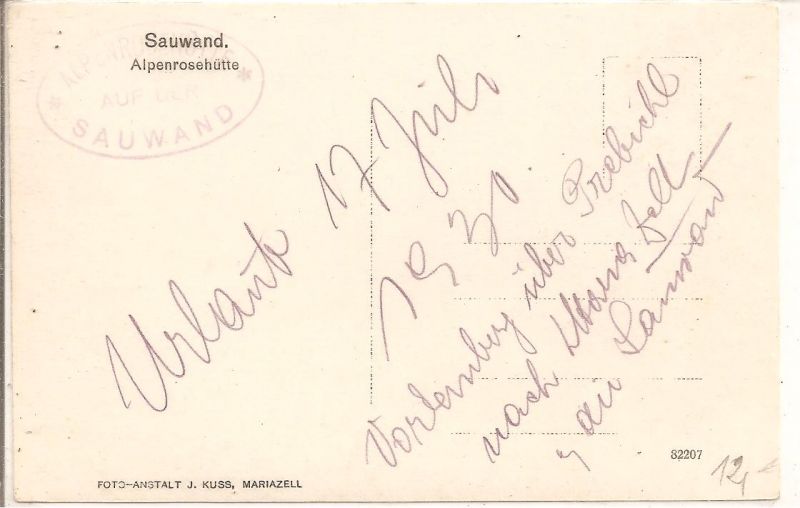 Sauwand.
Alpenrosehütte
* ALPENROSEHÜTTE *
AUF DER
SAUWAND
Urlaub 17 Juli
1930
Vordernberg über Prebichl
nach Maria Zell
die Sauwand
FOTO-ANSTALT J. KUSS, MARIAZELL
82207
12,-